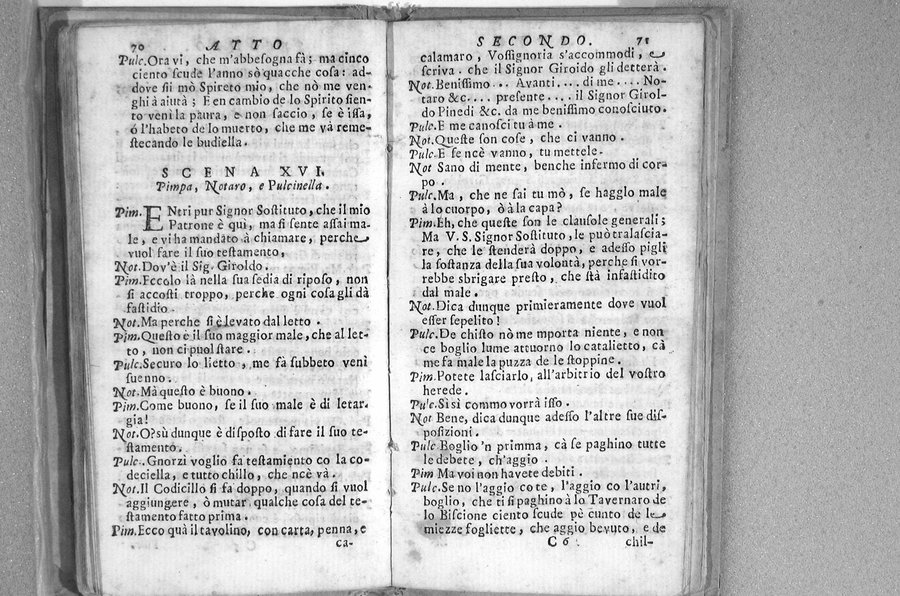 70 ATTO
Pulc. Ora vi, che m'abbesogna fà; ma cinco
ciento scude l'anno sò quacche cosa: ad-
dove sii mò Spireto mio, che nò me ven-
ghi à aiutà; E en cambio de lo Spirito sien-
to venì la paura, e non saccio, se è issa,
ó l'habeto de lo muerto, che me và reme-
stecando le budiella.
SCENA XVI.
Pimpa, Notaro, e Pulcinella.
Pim. ENtri pur Signor Sostituto, che il mio
Patrone è quì, ma si sente assai ma-
le, e vi ha mandato à chiamare, perche
vuol fare il suo testamento,
Not. Dov'è il Sig. Giroldo.
Pim. Eccolo là nella sua sedia di riposo, non
si accosti troppo, perche ogni cosa gli dà
fastidio.
Not. Ma perche si è levato dal letto.
Pim. Questo è il suo maggior male, che al let-
to, non ci puol stare.
Pulc. Securo lo lietto, me fa subbeto venì
suenno.
Not. Mà questo è buono.
Pim. Come buono, se il suo male è di letar-
gia!
Not. O? sù dunque è disposto di fare il suo te-
stamento.
Pulc. Gnorzi voglio fa testamiento co la co-
deciella, e tutto chillo, che ncè và.
Not. Il Codicillo si fa doppo, quando si vuol
aggiungere, ò mutar qualche cosa del te-
stamento fatto prima.
Pim. Ecco quà il tavolino, con carta, penna, e
ca-
SECONDO. 71
calamaro, Vossignoria s'accommodi, e
scriva. che il Signor Giroldo gli detterà.
Not. Benissimo.. Avanti.... di me.... No-
taro &c.... presente.... il Signor Girol-
do Pinedi &c. da me benissimo conosciuto.
Pulc. E me canosci tu à me.
Not. Queste son cose, che ci vanno.
Pulc. E se ncè vanno, tu mettele.
Not Sano di mente, benche infermo di cor-
po.
Pulc. Ma, che ne sai tu mò, se hagglo male
à lo cuorpo, ò à la capa?
Pim. Eh, che queste son le clausole generali;
Ma V. S. Signor Sostituto, le può tralascia-
re, che le stenderà doppo, e adesso pigli
la sostanza della sua volontà, perche si vor-
rebbe sbrigare presto, che stà infastidito
dal male.
Not. Dica dunque primieramente dove vuol
esser sepelito!
Pulc. De chisto nò me mporta niente, e non
ce boglio lume attuorno lo catalietto, cà
me fa male la puzza de le stoppine.
Pim. Potete lasciarlo, all'arbitrio del vostro
herede.
Pulc. Sì sì commo vorrà isso.
Not Bene, dica dunque adesso l'altre sue dis-
posizioni.
Pulc Boglio 'n primma, cà se paghino tutte
le debete, ch'aggio.
Pim Ma voi non havete debiti.
Pulc. Se no l'aggio co te, l'aggio co l'autri,
boglio, che ti si paghino à lo Tavernaro de
lo Biscione ciento scude pè cunto de le
miezze fogliette, che aggio bevuto, e de
C 6 chil-